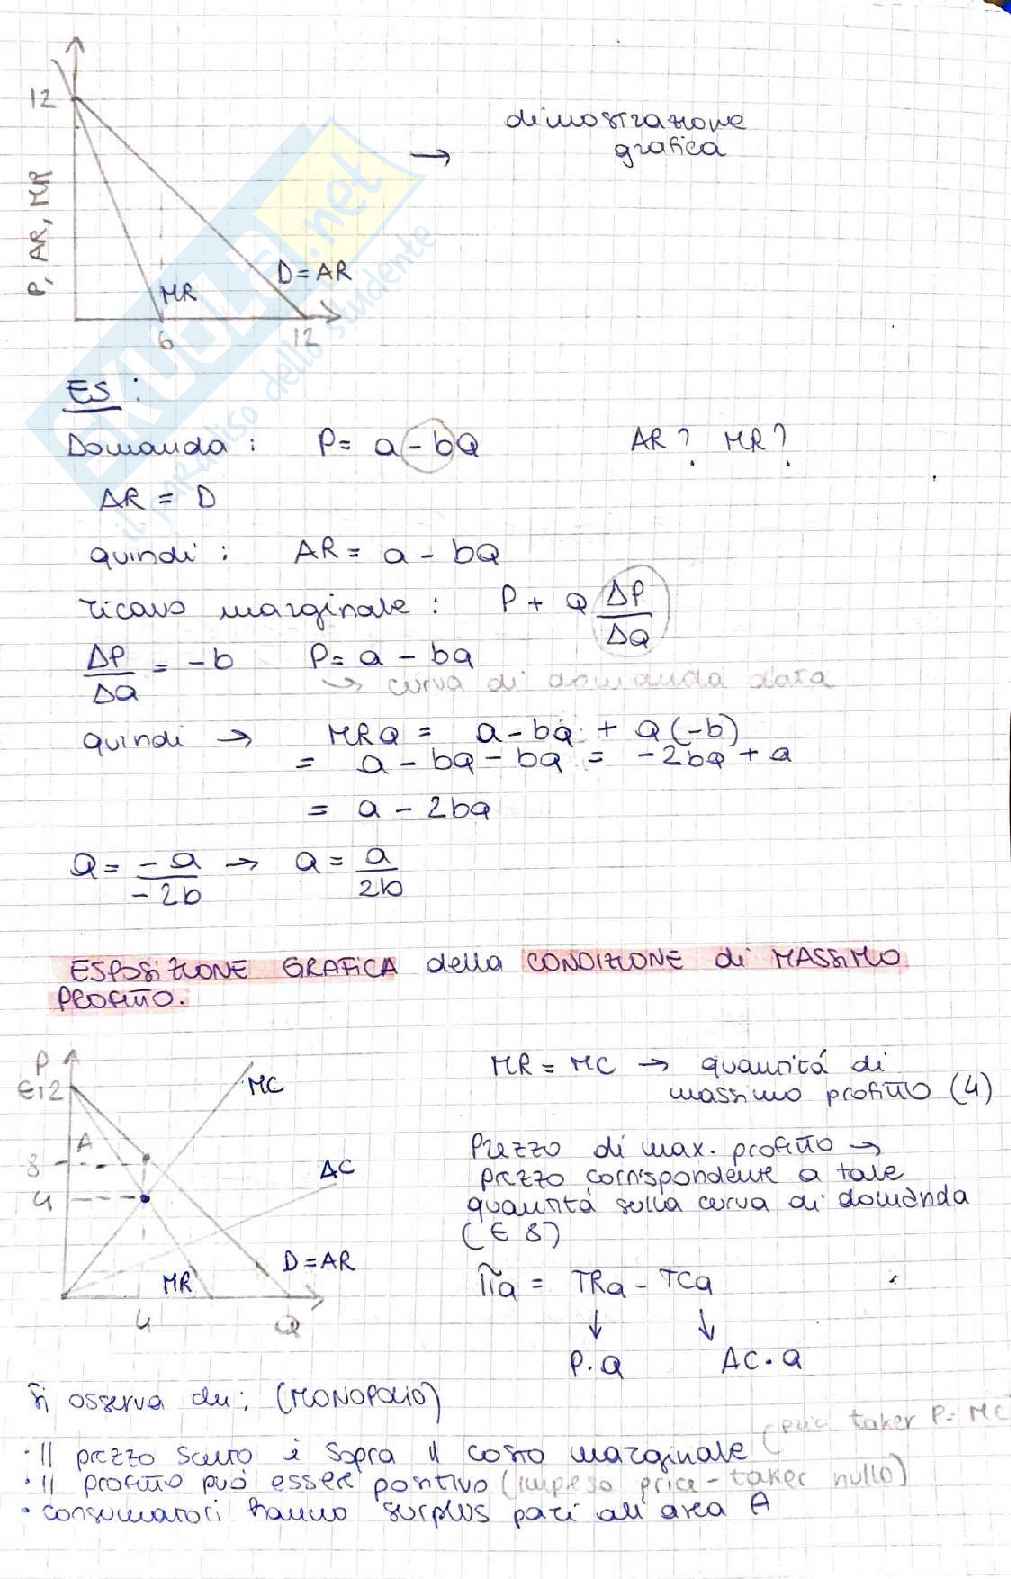 12
dimostrazione
→ grafica
P, AR, MR
D = AR
MR
6 12
SKUOLA.net
il paradiso dello studente
ES :
Domanda : P = a - bQ AR? MR?
AR = D
quindi : AR = a - bQ
ricavo marginale : P + Q ΔP/ΔQ
ΔP/ΔQ = -b P = a - bQ
→ curva di domanda data
quindi → MRQ = a - bQ + Q(-b)
= a - bQ - bQ = -2bQ + a
= a - 2bQ
Q = -a/-2b → Q = a/2b
ESPOSIZIONE GRAFICA della CONDIZIONE di MASSIMO
PROFITTO.
P
€12
MC
A
8
4
AC
D = AR
MR
4 Q
MR = MC → quantitá di
massimo profitto (4)
Prezzo di max. profitto →
prezzo corrispondente a tale
quantitá sulla curva di domanda
(€ 8)
πQ = TRQ - TCQ
↓ ↓
P·Q AC·Q
Si osserva che: (MONOPOLIO)
• Il prezzo scelto è sopra il costo marginale ( taker P = MC
• Il profitto può essere positivo (impresa price-taker nullo)
• consumatori hanno surplus pari all'area A